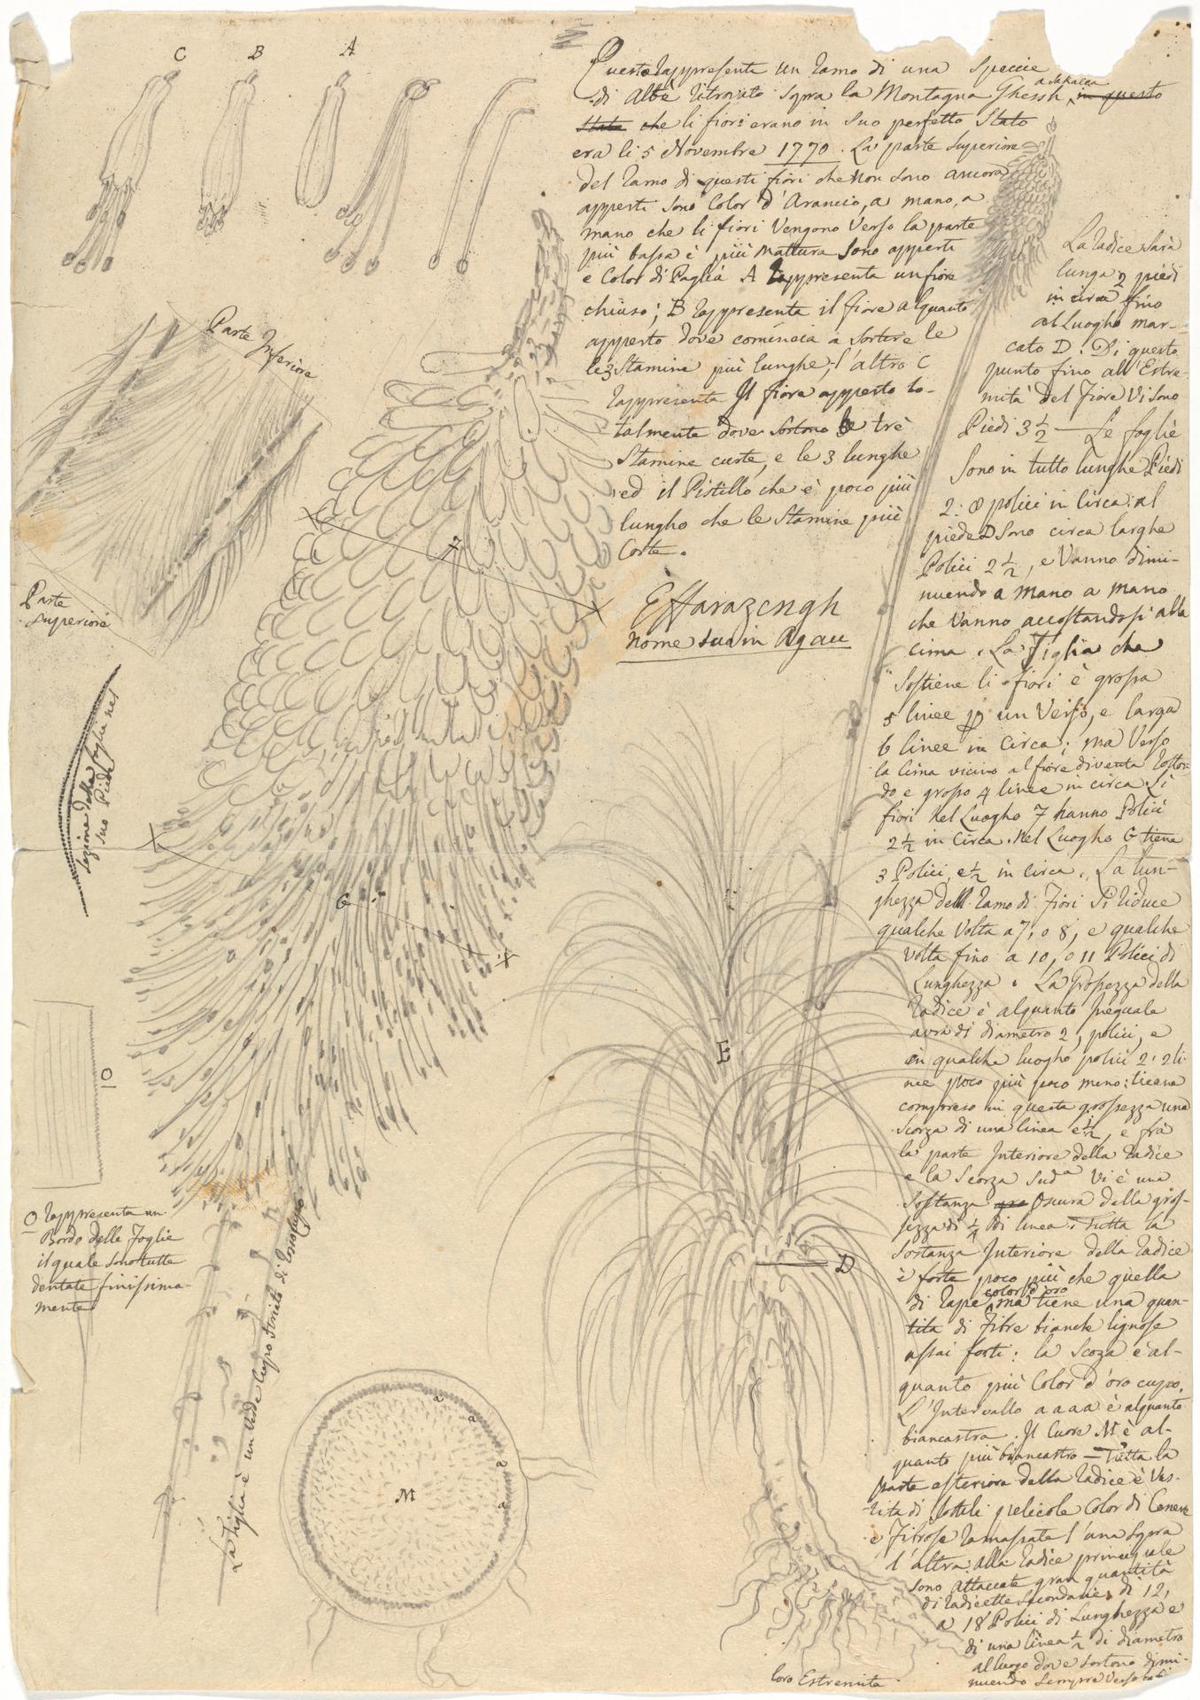 C B A
Questo Rappresenta un Ramo di una Speccie
di Albe Ritrovato sopra la Montagna Ghessh a Schalaa in questo
Stato che li fiori erano in suo perfetto Stato
era li 5 Novembre 1770. La parte Superiore
del Ramo di questi fiori che non sono ancora
apperti sono Color d'Arancio, a mano, a
mano che li fiori Vengono Verso la parte
più bassa è più mattura sono apperti
e Color di Paglia A Rappresenta un fiore
chiuso; B Rappresenta il fiore alquanto
apperto dove comincia a Sortire le
le 3 Stamine più lunghe; l'altro C
Rappresenta Il fiore apperto to-
talmente dove Sortono le tre
Stamine curte, e le 3 lunghe
ed il Pistillo che è poco più
lungho che le Stamine più
Corte.
Effarazengh
Nome suo in Agau
Parte Inferiore
Parte
Superiore
Sezione della foglia nel
suo Piede
7
G
O
O Rappresenta un
Bordo delle Foglie
il quale sono tutte
dentate finissima-
mente
La Tiglia è un Verde Cupo Striato di
M
a a a a
E
D
loro Estremita
La Radice Sarà
lunga 2 piedi
in circa fino
al Luogho mar-
cato D. Di questo
punto fino all'Estre-
mità del Fiore Vi sono
Piedi 3 1/2 — Le foglie
sono in tutto lunghe Piedi
2: 8 polici in Circa: al
piede D sono circa larghe
Polici 2 1/2, e Vanno dimi-
nuendo a mano a mano
che Vanno accostandosi alla
cima. La Tiglia che
Sostiene li fiori è grossa
5 linee p un Verso, e larga
6 linee in Circa; ma Verso
la Cima vicino al fiore diventa Roton-
do e grosso 4 linee in circa. Li
fiori nel Luogho 7 hanno Polici
2 1/2 in Circa. Nel Luogho G tiene
3 Polici, e 1/2 in circa. La lun-
ghezza dell Ramo di Fiori Si Riduce
qualche Volta a 7, o 8, e qualche
volta fino a 10, o 11 Polici di
Lunghezza. La Grossezza della
Radice è alquanto Inequale
avrà di diametro 2, polici, e
in qualche luogho polici 2: 2 li-
nee poco più poco meno:
compreso in questa grossezza una
Scorza di una linea e 1/2, e frà
la parte Interiore della Radice
e la Scorza Sud.a Vi è una
Sostanza Oscura della gros-
sezza di 1/4 di linea. Tutta la
Sostanza Interiore della Radice
è forte poco più che quella
di Rape color d'oro ma tiene una quan-
tita di Fibre bianche lignose
assai forti: la Scoza è al-
quanto più Color d'oro cupo.
L'Intervallo a a a a è alquanto
biancastra. Il Cuore M è al-
quanto più biancastro = Tutta la
Parte esteriore della Radice è Ves-
tita di Sottili pelicole Color di Cenere
e Fibrose l'una sopra
l'altra: alla Radice principale
sono attaccate gran quantità
di Radicette Secondarie, di 12,
a 18 Polici di Lunghezza e
di una linea 1/2 di diametro
al luogo dove Sortono dimi-
nuendo Sempre Verso la